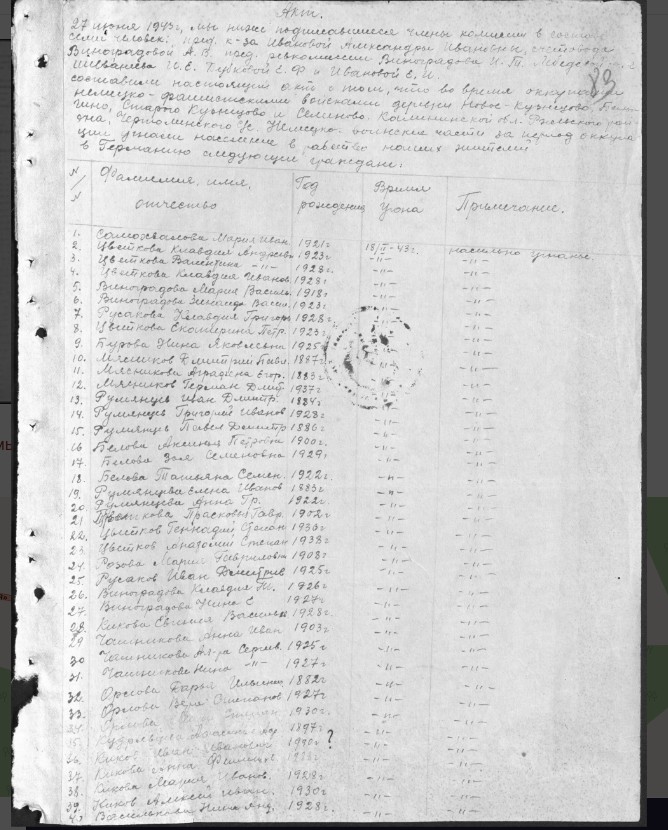 Акт.
27 июня 1943 г, мы ниже подписавшиеся члены комиссии в составе
семи человек: пред. к-за Ивановой Александры Ивановны, счетовода
Виноградовой А. В. пред. ревкомиссии Виноградова И. Т.
И. Е. Е. Ф и Ивановой Е. И.
83
составили настоящий акт о том, что во время оккупации
немецко-фашистскими войсками деревни Ново-Кузнецово,
Старого Кузнецово и Семеново. Калининской обл. Ржевского рай-
она, Чертолинского с/с. Немецко. воинские части за период оккупа-
ции угнали население в рабство наших жителей
в Германию следующие граждане:
N/N Фамилия, имя, отчество Год рождения Время угона Примечание.
1. Самохвалова Мария Иван 1921г.
2. Цветкова Клавдия Андреевн 1923г 18/II-43г. насильно угнаны.
3. Цветкова Валентина -"- 1928г. -"- -"-
4. Цветкова Клавдия Иванов 1928г -"- -"-
5. Виноградова Мария Василь 1918г -"- -"-
6. Виноградова Зинаида Васил. 1923г. -"- -"-
7. Русакова Клавдия Григорь 1928г. -"- -"-
8. Цветкова Екатерина Петр. 1923г. -"- -"-
9. Бурова Нина Яковлевна 1925г -"- -"-
10. Мясников Дмитрий Павл. 1887г. -"- -"-
11. Мясникова Аграфена Егор. 1883г -"- -"-
12. Мясников Герман Дмит 1937г -"- -"-
13. Румянцев Иван Дмитр. 1884г -"- -"-
14. Румянцев Григорий Иванов 1928г -"- -"-
15. Румянцев Павел Дмитр 1886г -"- -"-
16 Белова Аксинья Петровна 1900г. -"- -"-
17. Белова Зоя Семеновна 1929г -"- -"-
18. Белова Татьяна Семен. 1922г. -"- -"-
19. Румянцева Елена Иванов 1883г -"- -"-
20. Румянцева Анна Гр. 1922г. -"- -"-
21 Цветкова Прасковья Гавр. 1902г -"- -"-
22. Цветков Геннадий Степан 1936г -"- -"-
23 Цветков Анатолий Степан 1938г -"- -"-
24. Розова Мария Гавриловн 1908г -"- -"-
25. Русаков Иван Дмитрив 1925г -"- -"-
26. Виноградова Клавдия 1926г -"- -"-
27. Виноградова Нина Е 1927г -"- -"-
28. Кикова Евгения Василье 1928г. -"- -"-
29 Чашникова Анна Иван 1903г -"- -"-
30 Чашникова Ал-ра Сергеев. 1925г -"- -"-
31. Чашникова Нина -"- 1927г -"- -"-
32. Орлова Дарья Ильинич 1882г -"- -"-
33. Орлова Вера Степанов 1927г -"- -"-
34. Орлова 1930г. -"- -"-
35. 1897г -"- -"-
36. Киков Иван Иванович 1990г ? -"- -"-
37. Кикова Анна -"- -"-
38. Кикова Мария Иванов. 1928г -"- -"-
39. Киков Алексей Иван. 1930г -"- -"-
Василькова Нина Анд. 1928г. -"- -"-